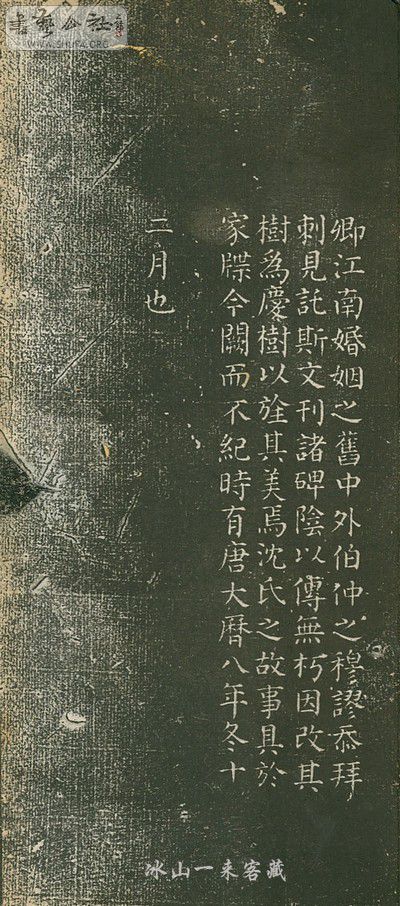 書藝公社
WWW.SHUFA.ORG
卿江南婚姻之舊中外伯仲之穆謬忝拜
刺見託斯文刊諸碑陰以傳無朽因改其
樹為慶樹以旌其美焉沈氏之故事具於
家牒今闕而不紀時有唐大曆八年冬十
二月也
冰山一来客藏